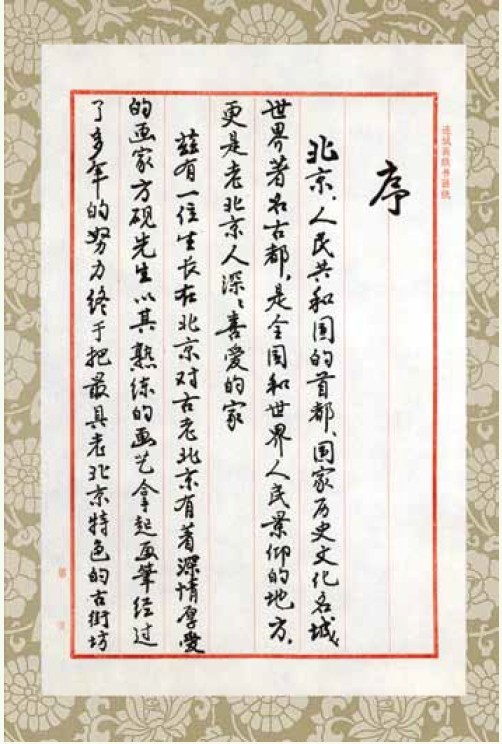 序
北京、人民共和国的首都、国家历史文化名城、
世界著名古都，是全国和世界人民景仰的地方，
更是老北京人深〻喜爱的家
兹有一位生长在北京对古老北京有着深情厚爱
的画家方砚先生以其熟练的画艺拿起画笔经过
了多年的努力终于把最具老北京特色的古街坊